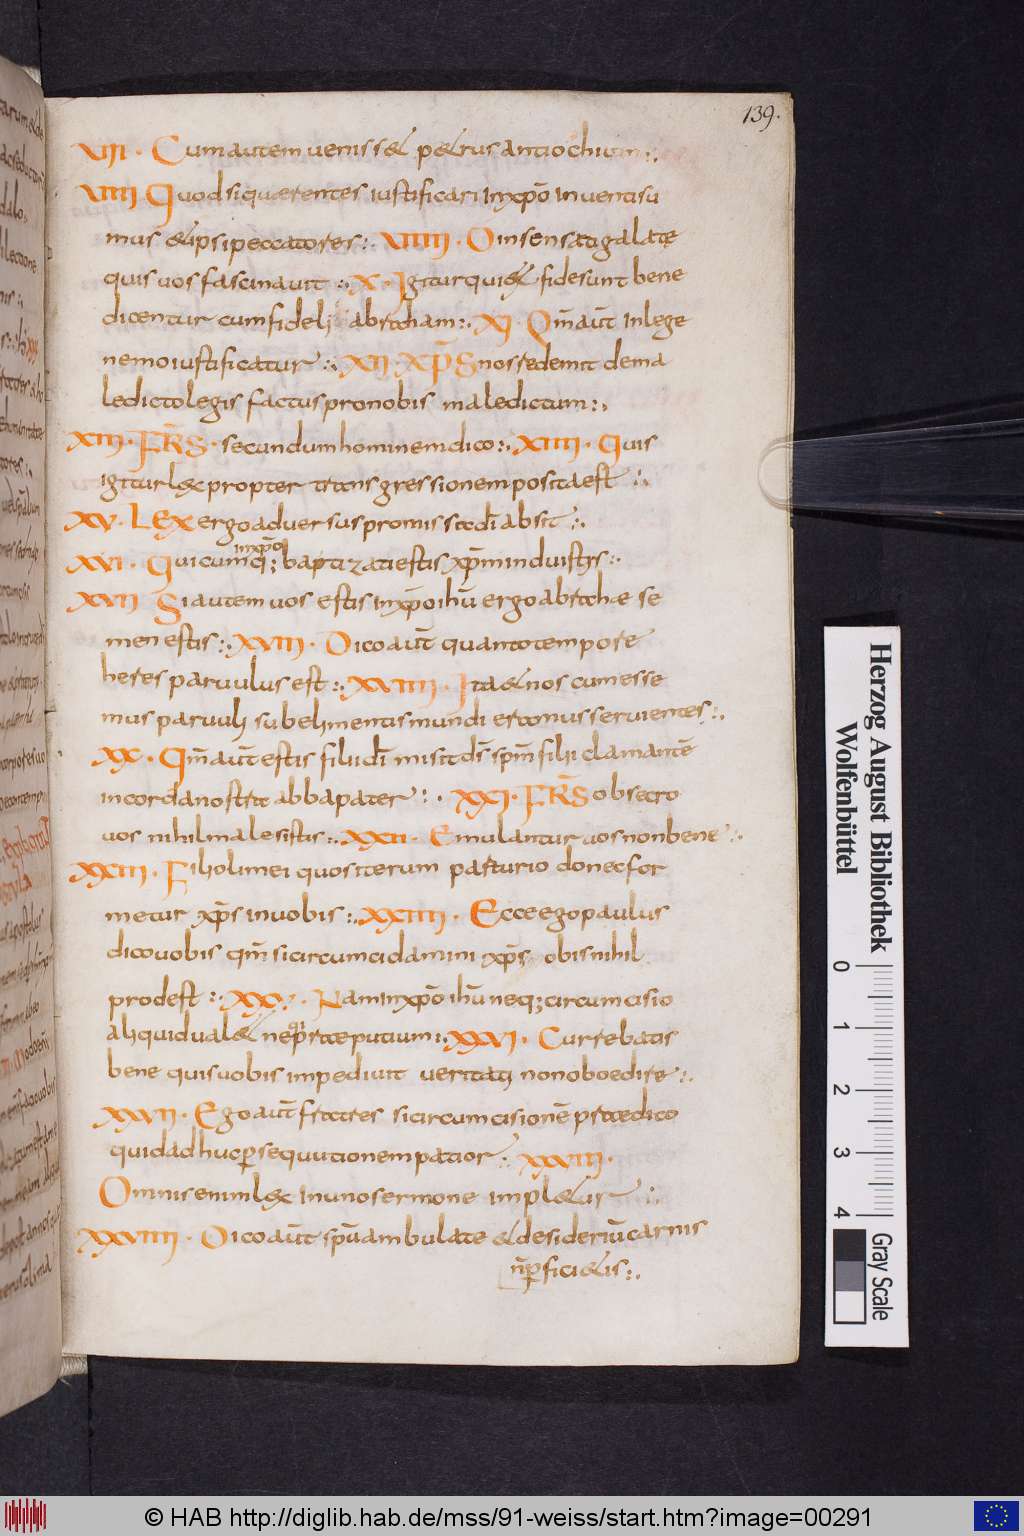 139.
VIII · Cum autem venisset petrus antiochiam :.
VIIII Quod si quærentes iustificari inxp̄o inventi su
mus & ipsi peccatores :. VIIII · O insensati galatæ
quis vos fascinavit :. X · Igitur qui ex fide sunt bene
dicentur cum fideli abraham :. XI · Qm̄ aut̄ in lege
nemo iustificatur :. XII XP̄S nos redemit de ma
ledicto legis factus pro nobis maledictum :.
XIII · FR̄S · secundum hominem dico :. XIIII · Quis
igitur lex propter transgressionem posita est :.
XV · LEX ergo adversus promissa dī absit :.
inxp̄o
XVI · Quicumq; baptizati estis xp̄m induistis :.
XVII Si autem vos estis inxp̄o ihū ergo abrahæ se
men estis :. XVIII · Dico aut̄ quanto tempore
heres parvulus est :. XVIIII · Ita & nos cum esse
mus parvuli sub elimentis mundi eramus servientes :.
XX · Qm̄ aut̄ estis filii dī misit ds̄ spm̄ filii clamantē
in corda nostra abba pater :. XXI · FR̄S obsecro
vos nihil me lesistis :. XXII · Emulantur vos non bene :.
XXIII · Filioli mei quos iterum parturio donec for
metur xp̄s in vobis :. XXIIII · Ecce ego paulus
dico vobis qm̄ si circumcidamini xp̄s obis nihil
prodest :. XXV · Nam inxp̄o ihū neq; circumcisio
aliquid val& neq; præputium :. XXVI · Currebatis
bene quis vobis impedivit veritati non oboedire :.
XXVII · Ego aut̄ fratres si circumcisionē prædico
quid adhuc persequutionem patior :. XXVIII ·
Omnis enim lex in uno sermone impl&ur :.
XXVIIII · Dico aut̄ spū ambulate & desideriū carnis
n̄ perfici&is :.
Herzog August Bibliothek
Wolfenbüttel
0 1 2 3 4
Gray Scale
© HAB http://diglib.hab.de/mss/91-weiss/start.htm?image=00291